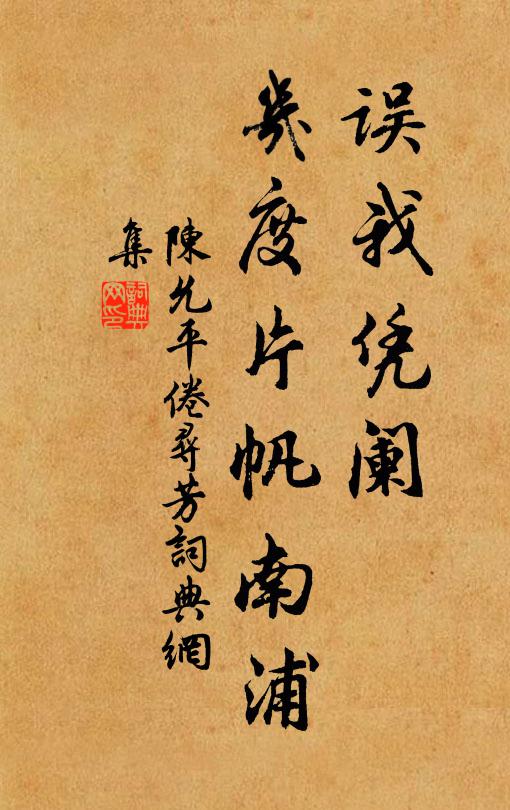 误我凭阑
几度片帆南浦
陳允平倦尋芳詞典網
集
詞典
网印